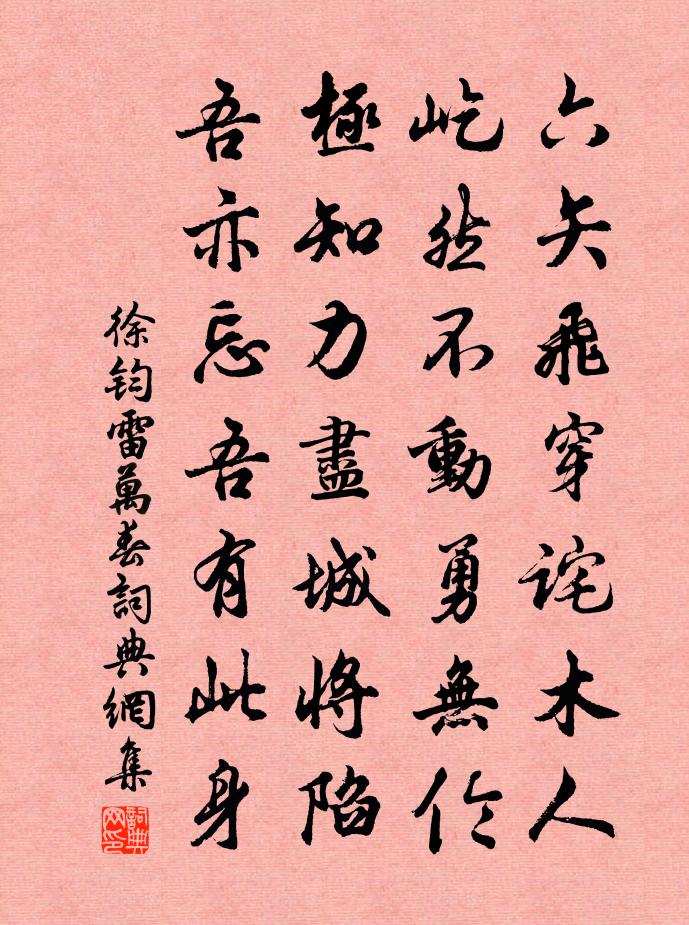 六矢飛穿詫木人
屹然不動勇無伦
極知力盡城將陷
吾亦忘吾有此身
徐鈞雷萬春詞典網集
詞典网印